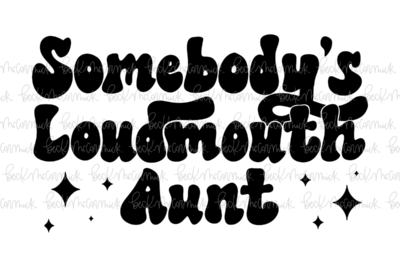 Somebody's
Loudmouth
Aunt